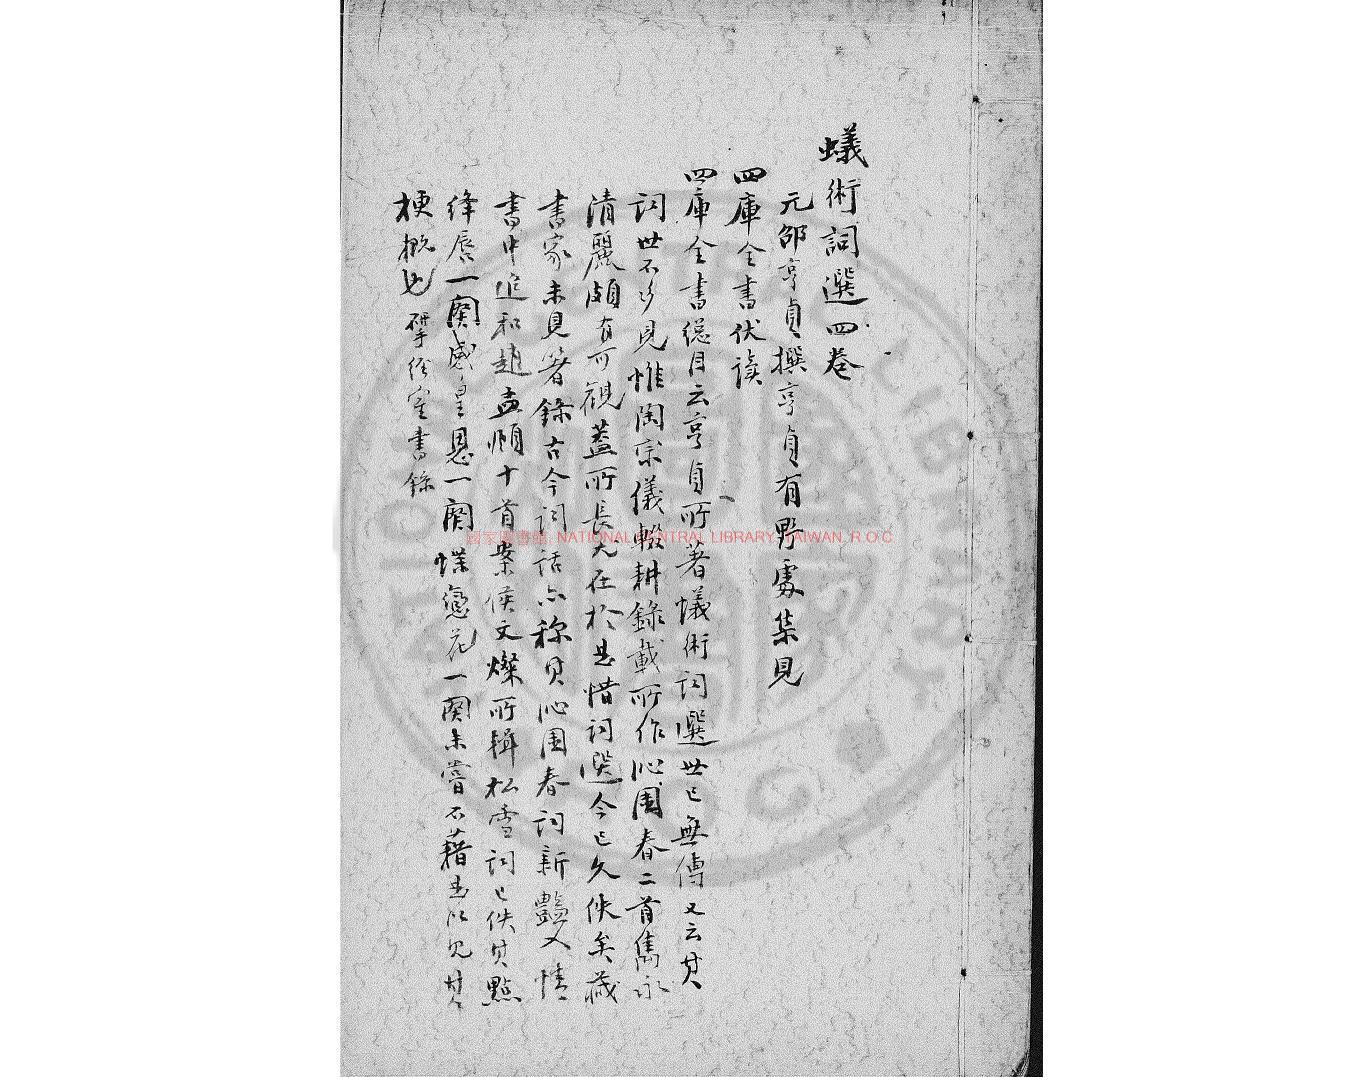 蟻術詞選四卷
元邵亨貞撰亨貞有野處集見
四庫全書伏讀
四庫全書總目云亨貞所著蟻術詞選世已無傳又云其
詞世不多見惟陶宗儀輟耕錄載所作沁園春二首雋永
清麗頗有可觀蓋所長尤在於是惜詞選今已久佚矣藏
書家未見著錄古今詞話亦稱其沁園春詞新艷入情
書中追和趙孟頫十首案侯文燦所輯松雪詞已佚其點
絳唇一闋感皇恩一闋蝶戀花一闋未嘗不藉是以見其
梗概也 揅經室書錄
國家圖書館, NATIONAL CENTRAL LIBRARY, TAIWAN, R.O.C